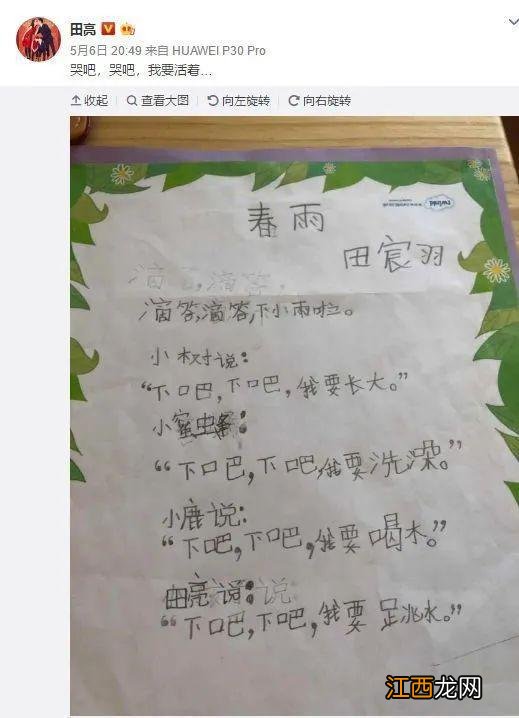 田亮
5月6日 20:49 来自 HUAWEI P30 Pro
哭吧，哭吧，我要活着...
收起 查看大图 向左旋转 向右旋转
twinkl
春雨
田宸羽
滴答,滴答,
滴答,滴答,下小雨啦。
小树说:
“下吧,下吧,我要长大。”
小蜜虫条:
“下吧,下吧,我要洗澡。”
小鹿说:
“下吧,下吧,我要喝水。”
田亮说: 说
“下吧,下吧,我要跳水。”
江西龙网